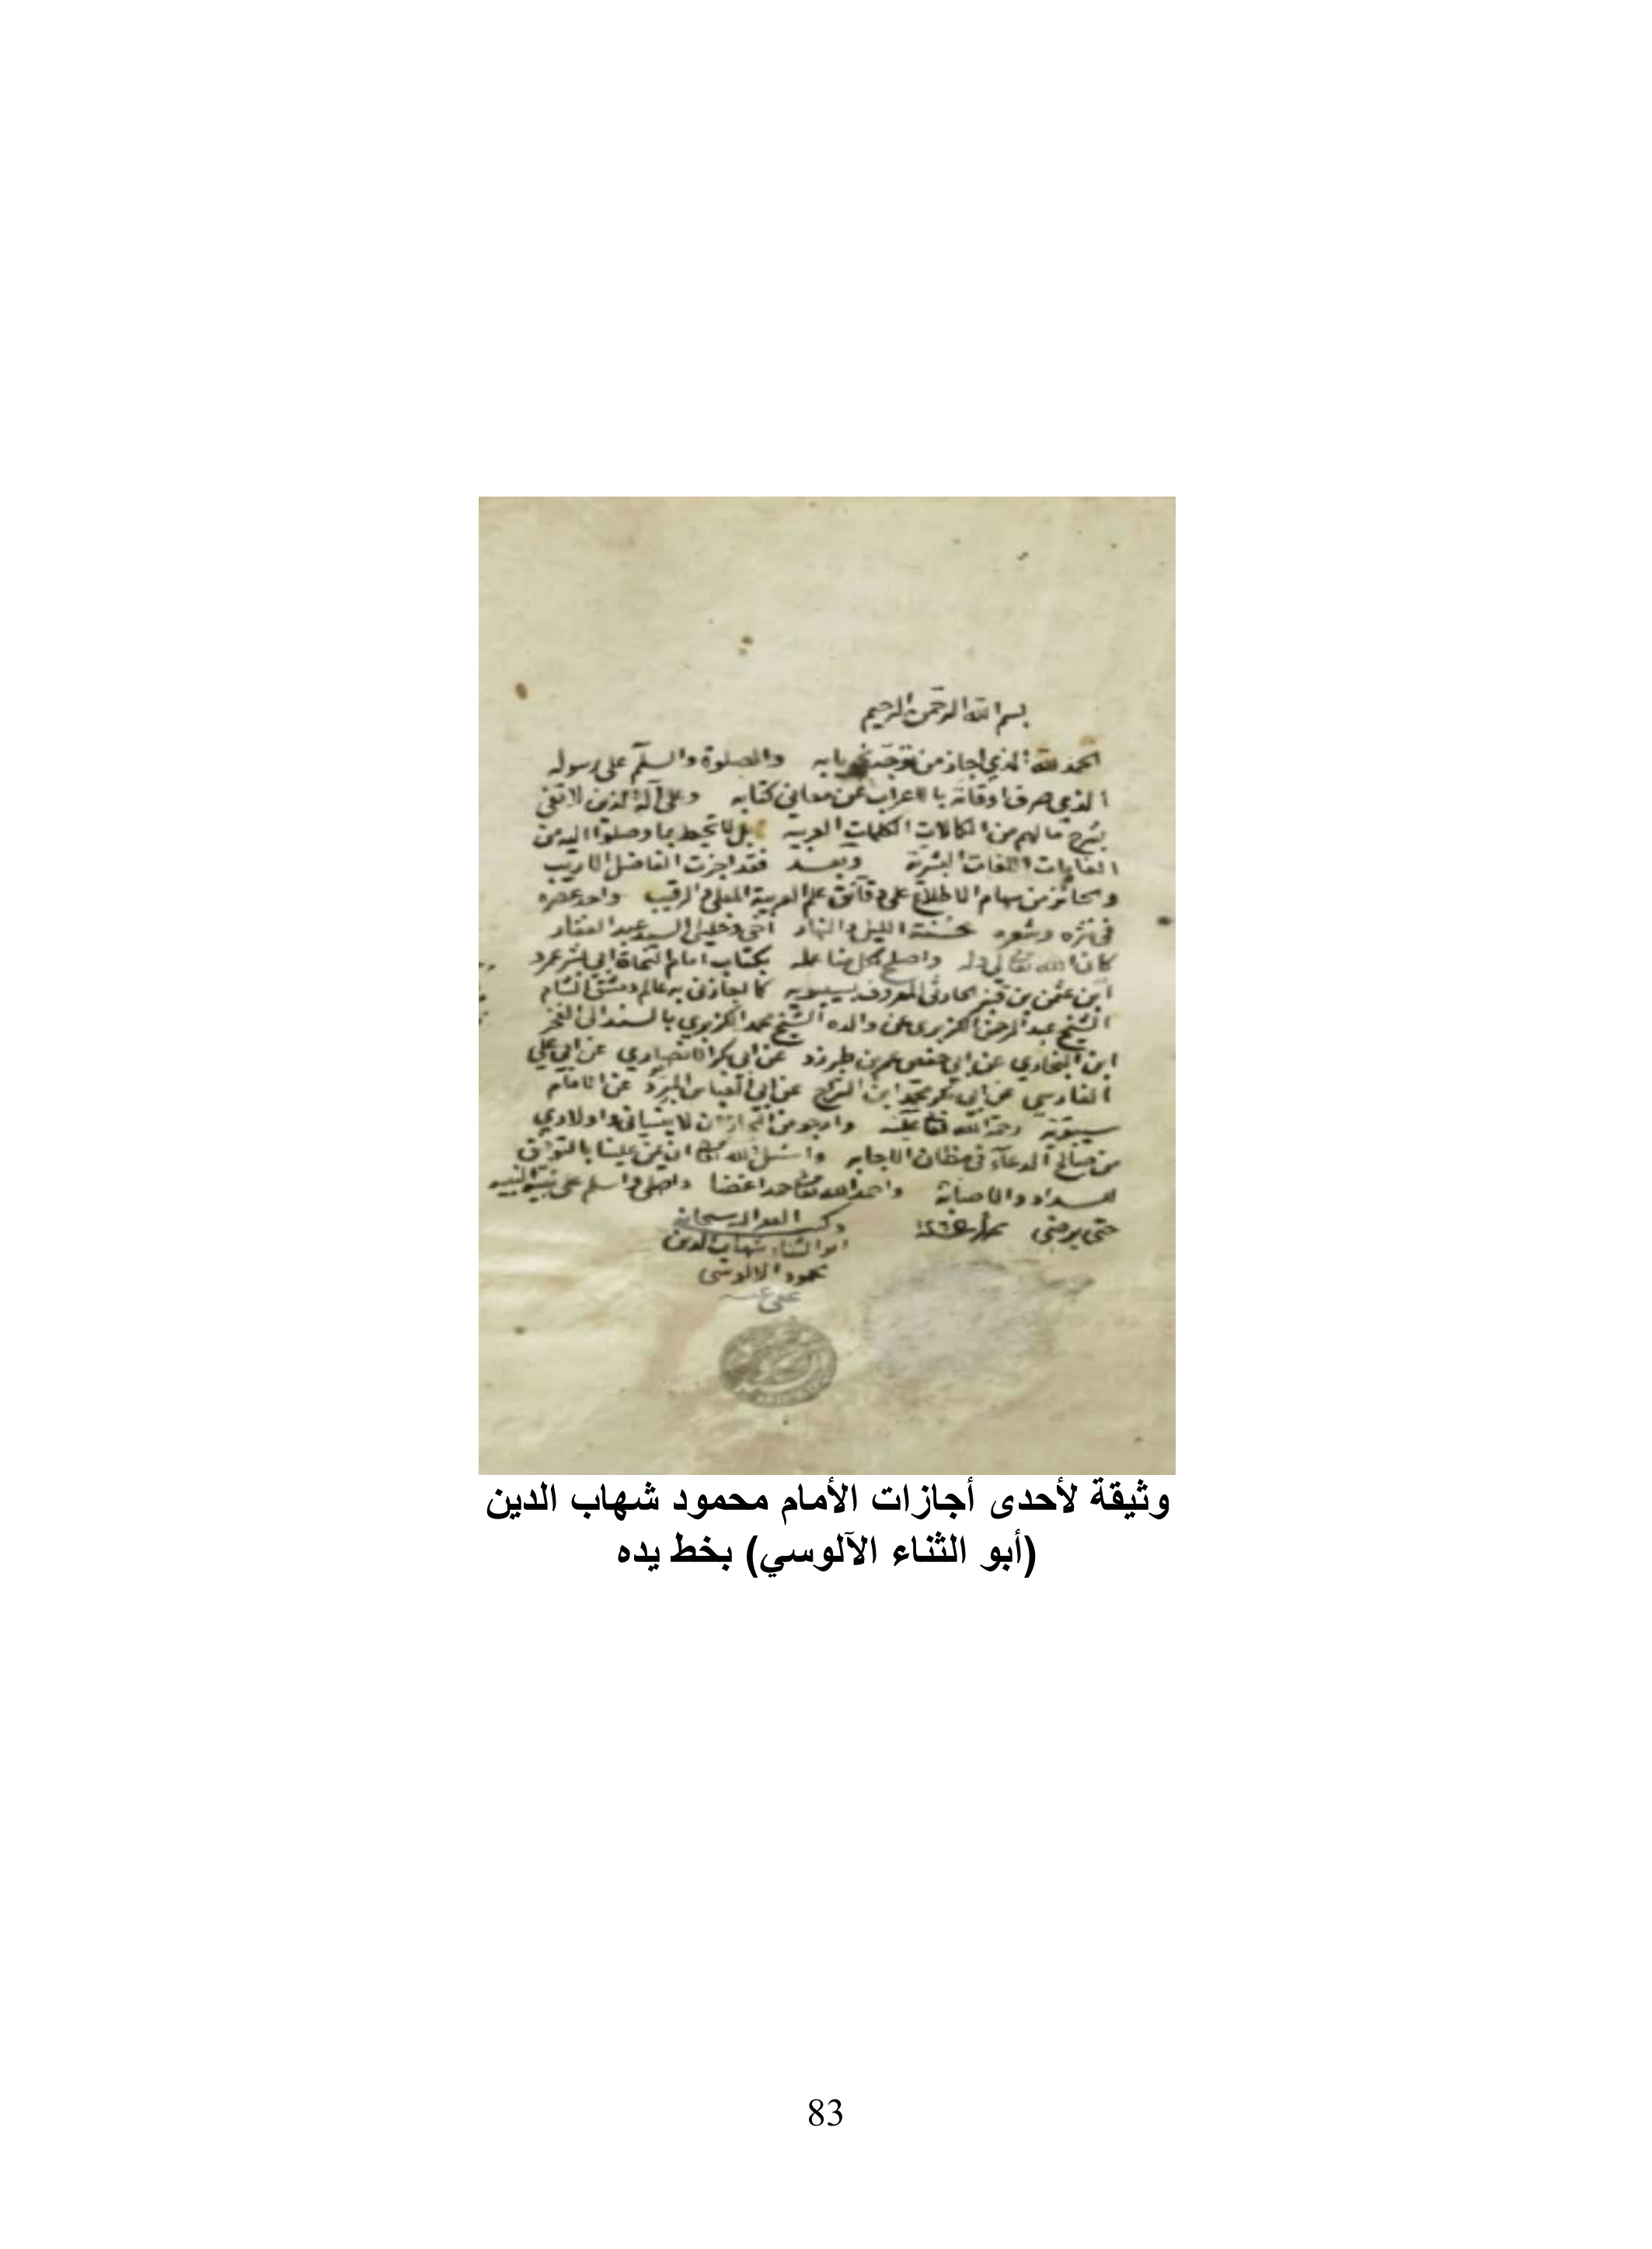 بسم الله الرحمن الرحيم
الحمد لله الذي اجاز من توجه نحو بابه والصلوة والسلم على رسوله
الذي صرف اوقاته بالاعراب عن معاني كتابه وعلى آله الذين لا تفي
بشرح ما لهم من الكمالات الكلمات العربيه بل لا تحيط بما وصلوا اليه من
الغايات اللغات البشرية وبعد فقد اجزت الفاضل الاريب
والحائز من سهام الاطلاع على دقائق علم العربية المعلى والرقيب واحد عصره
في نثره وشعره حسنة الليل والنهار اخي وخليلي السيد عبد الغفار
كان الله تعالى له واصلح كل منا عمله بكتاب امام النحاة ابي بشر عمرو
ابن عثمن بن قنبر الحارثي المعروف بسيبويه كما اجازني به عالم دمشق الشام
الشيخ عبد الرحمن الكزبري عن والده الشيخ محمد الكزبري بالسند الى الفخر
ابن البخاري عن ابي حفص عمر بن طبرزد عن ابي بكر الانصاري عن ابي علي
الفارسي عن ابي بكر محمد ابن السراج عن ابي العباس المبرد عن الامام
سيبويه رحمة الله تعالى عليه وارجو من المجاز ان لا ينساني واولادي
من صالح الدعاء في مظان الاجابه واسئل الله ان يمن علينا بالتوفيق
للسداد والاصابة واحمد الله تعالى حمدا غضا واصلي واسلم على نبيه النبيه
حتى يرضى
وكتب الفقير اليه سبحانه
ابو الثناء شهاب الدين
محمود الالوسي
عفي عنه
وثيقة لأحدى أجازات الأمام محمود شهاب الدين
(أبو الثناء الآلوسي) بخط يده
83